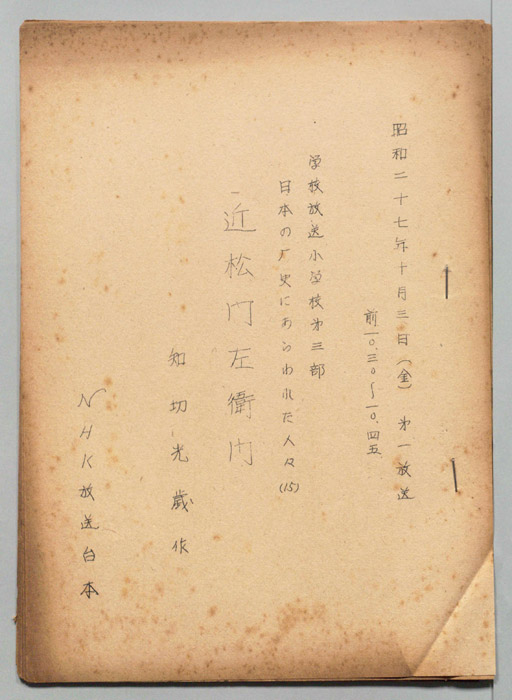 昭和二十七年十月三日(金) 第一放送
前一〇.三〇〜一〇.四五
学校放送小学校第三部
日本の歴史にあらわれた人々(15)
近松門左衛門
知切光歳作
NHK放送台本